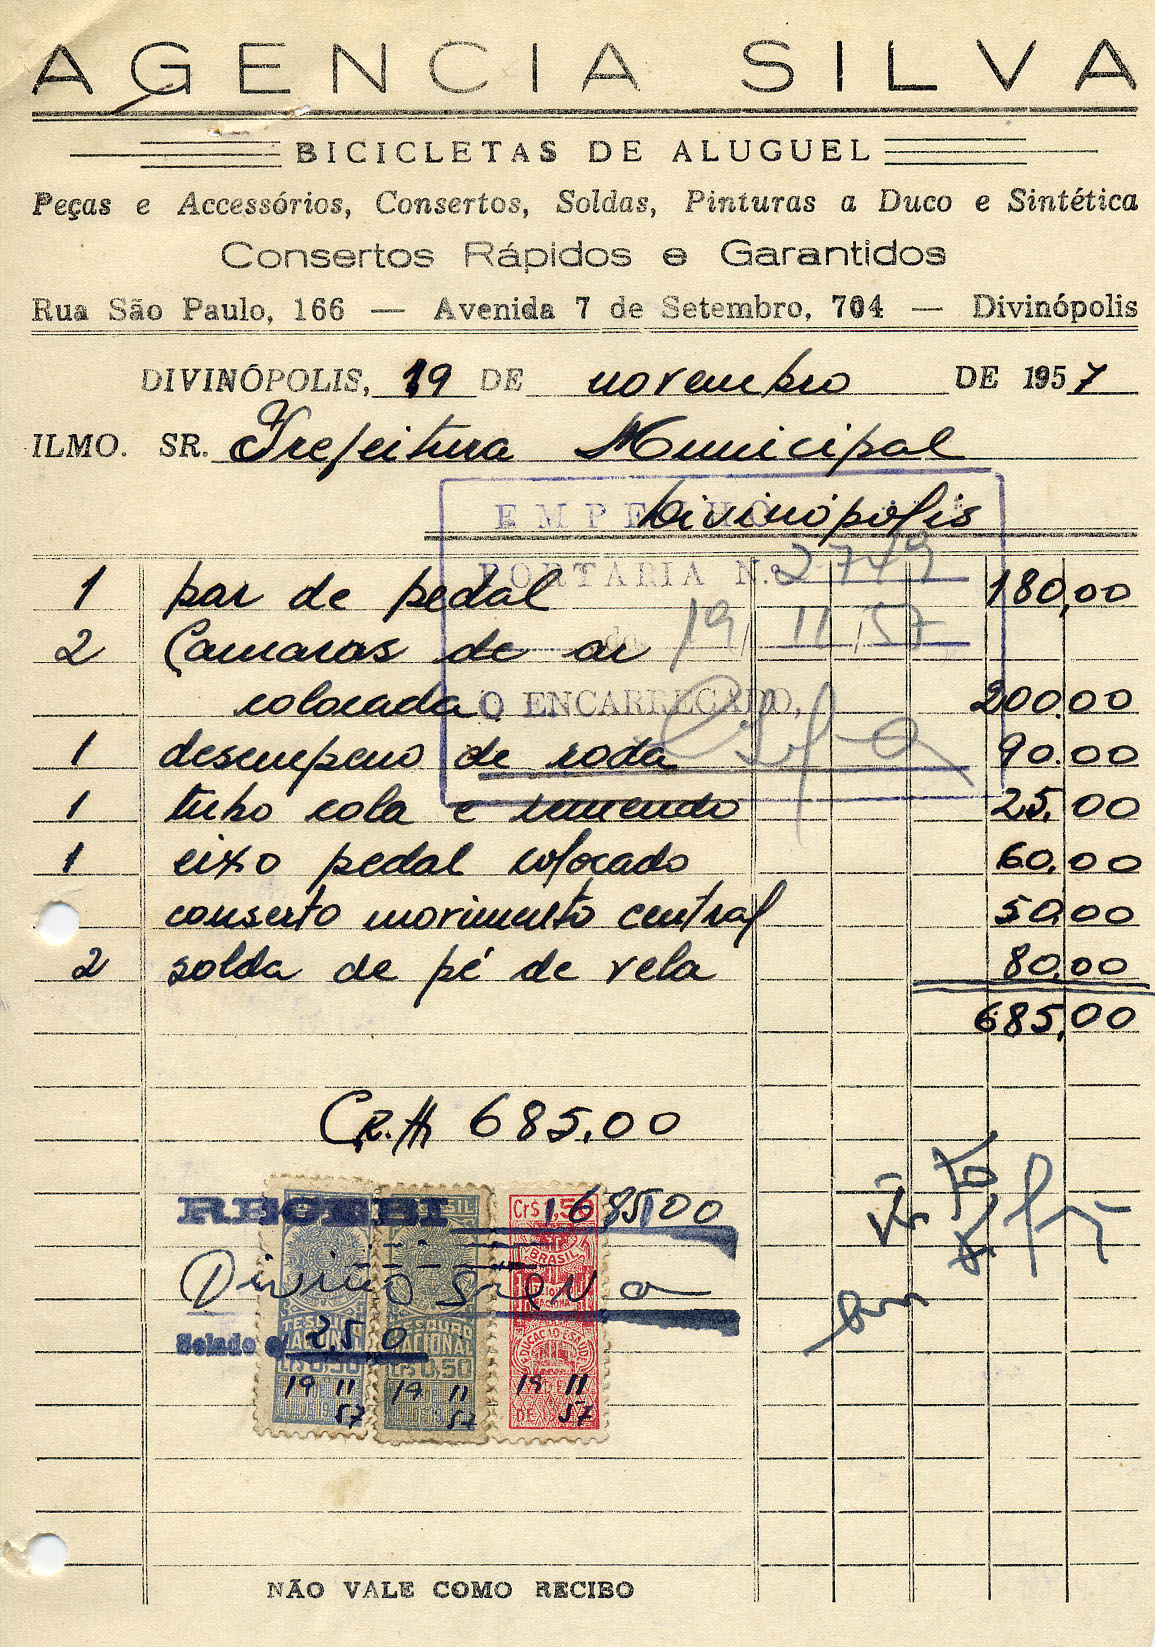 AGENCIA SILVA
BICICLETAS DE ALUGUEL
Peças e Accessórios, Consertos, Soldas, Pinturas a Duco e Sintética
Consertos Rápidos e Garantidos
Rua São Paulo, 166 — Avenida 7 de Setembro, 704 — Divinópolis
DIVINÓPOLIS, 19 DE novembro DE 1957
ILMO. SR. Prefeitura Municipal
Divinópolis
EMPENHO
PORTARIA N.º 2749
de 19/11/57
O ENCARREGADO,
1 par de pedal 180,00
2 Camaras de ar
colocada 200.00
1 desempeno de roda 90.00
1 tubo cola e remendo 25,00
1 eixo pedal colocado 60,00
conserto movimento central 50,00
2 solda de pé de vela 80,00
685,00
CR.$ 685,00
RECEBI 685,00
Divino Silva
Selado c/ 2,50
TESOURO NACIONAL
CR$ 0,50
19 11 57
BRASIL
TESOURO NACIONAL
CR$ 0,50
19 11 57
Cr$ 1,50
BRASIL
EDUCAÇÃO E SAUDE
19 11 57
NÃO VALE COMO RECIBO